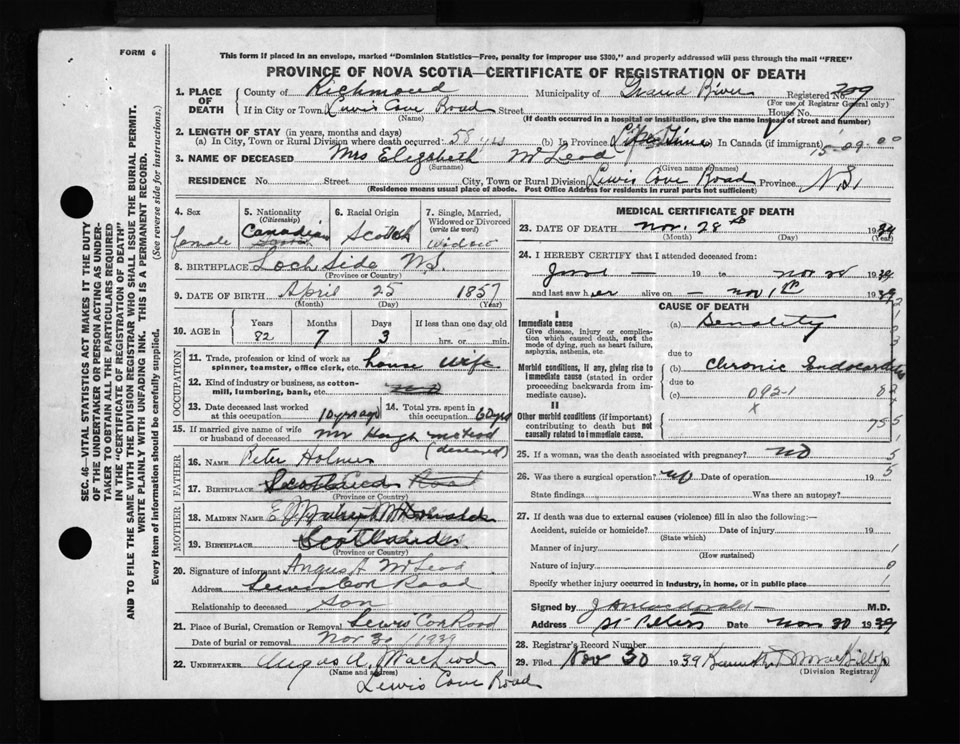 FORM 6
This form if placed in an envelope, marked "Dominion Statistics—Free, penalty for improper use $300," and properly addressed will pass through the mail "FREE"
PROVINCE OF NOVA SCOTIA—CERTIFICATE OF REGISTRATION OF DEATH
1. PLACE OF DEATH County of Richmond Municipality of Grand River Registered No. 709
(For use of Registrar General only)
If in City or Town Lewis Cove Road Street House No.
(Name) (If death occurred in a hospital or institution, give the name instead of street and number)
2. LENGTH OF STAY (in years, months and days)
(a) In City, Town or Rural Division where death occurred 58 yrs (b) In Province Life Time (c) In Canada (if immigrant) 15-09-00
3. NAME OF DECEASED Mrs Elizabeth McLeod
(Surname) (Given names)
RESIDENCE No. Street City, Town or Rural Division Lewis Cove Road Province N.S.
(Residence means usual place of abode. Post Office Address for residents in rural parts not sufficient)
4. Sex female
5. Nationality (Citizenship) Canadian
6. Racial Origin Scottish
7. Single, Married, Widowed or Divorced (write the word) Widow
8. BIRTHPLACE Loch Side N.S.
(Province or Country)
9. DATE OF BIRTH April 25 1857
(Month) (Day) (Year)
10. AGE in Years 82 Months 7 Days 3 If less than one day old hrs. or min.
OCCUPATION
11. Trade, profession or kind of work as spinner, teamster, office clerk, etc. house wife
12. Kind of industry or business, as cotton-mill, lumbering, bank, etc.
13. Date deceased last worked at this occupation 10 yrs ago 14. Total yrs. spent in this occupation 60 yrs
15. If married give name of wife or husband of deceased Mr Hugh McLeod (deceased)
FATHER
16. Name Peter Holmes
17. Birthplace Scotland Road
(Province or Country)
MOTHER
18. MAIDEN NAME
19. BIRTHPLACE Scotland
(Province or Country)
20. Signature of informant Angus A McLeod
Address Lewis Cove Road
Relationship to deceased Son
21. Place of Burial, Cremation or Removal Lewis Cove Road
Date of burial or removal Nov 30 1939
22. UNDERTAKER Angus A. MacLeod
(Name and address)
Lewis Cove Road
MEDICAL CERTIFICATE OF DEATH
23. DATE OF DEATH Nov. 28th 1939
(Month) (Day) (Year)
24. I HEREBY CERTIFY that I attended deceased from:
June — 19 to Nov 28 1939
and last saw her alive on — Nov 1st 1939
CAUSE OF DEATH
I
Immediate cause
Give disease, injury or complication which caused death, not the mode of dying, such as heart failure, asphyxia, asthenia, etc.
(a) Senality
due to
Morbid conditions, if any, giving rise to immediate cause (stated in order proceeding backwards from immediate cause).
(b) Chronic Endocarditis
due to
(c) 092-1
x
II
Other morbid conditions (if important) contributing to death but not causally related to immediate cause.
25. If a woman, was the death associated with pregnancy? no
26. Was there a surgical operation? no Date of operation
State findings Was there an autopsy?
27. If death was due to external causes (violence) fill in also the following:—
Accident, suicide or homicide? Date of injury 19
(State which)
Manner of injury
(How sustained)
Nature of injury
Specify whether injury occurred in industry, in home, or in public place
Signed by J A Macdonald M.D.
Address St. Peters Date Nov 30 1939
28. Registrar's Record Number
29. Filed Nov 30 1939 Kenneth D MacKillop
(Division Registrar)
SEC. 46—VITAL STATISTICS ACT MAKES IT THE DUTY
OF THE UNDERTAKER OR PERSON ACTING AS UNDER-
TAKER TO OBTAIN ALL THE PARTICULARS REQUIRED
IN THE "CERTIFICATE OF REGISTRATION OF DEATH"
AND TO FILE THE SAME WITH THE DIVISION REGISTRAR WHO SHALL ISSUE THE BURIAL PERMIT.
WRITE PLAINLY WITH UNFADING INK. THIS IS A PERMANENT RECORD.
Every item of information should be carefully supplied. (See reverse side for instructions.)